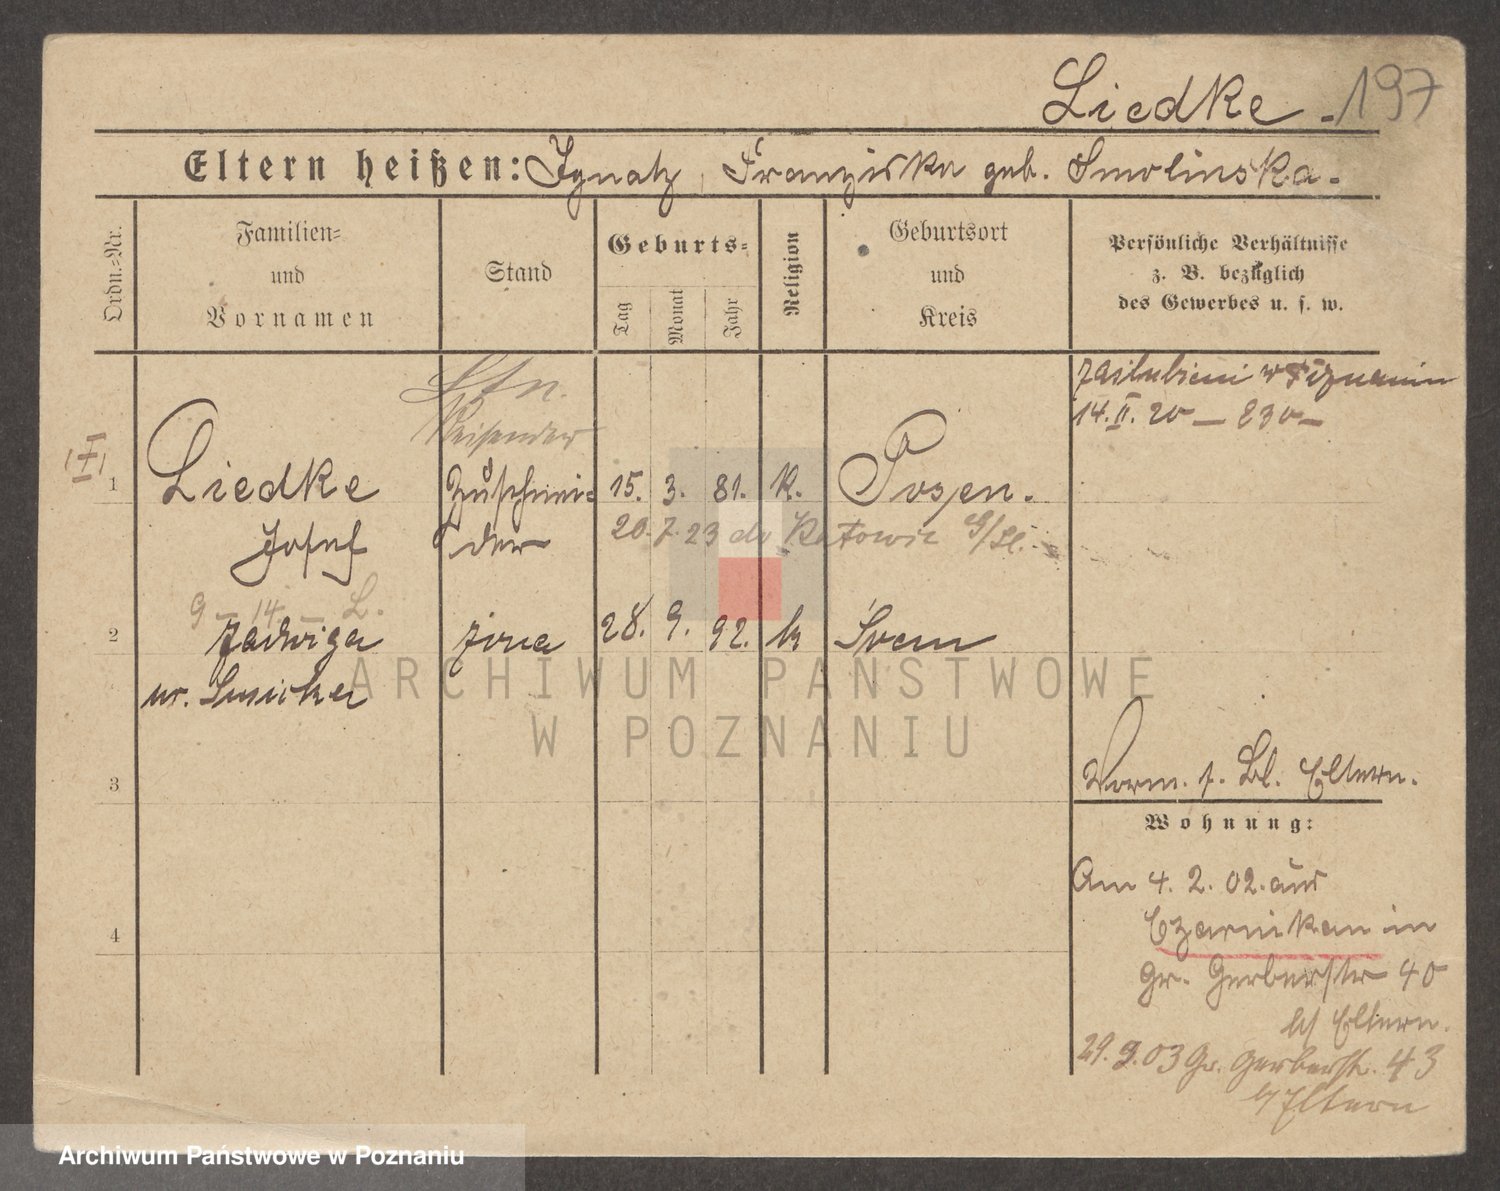 Liedke - 197
Eltern heißen: Ignatz, Franziska geb. Smolinska.
Ordn.=Nr.
Familien=
und
Vornamen
Stand
Geburts=
Tag
Monat
Jahr
Religion
Geburtsort
und
Kreis
Persönliche Verhältnisse
z. B. bezüglich
des Gewerbes u. s. w.
zaślubieni w Poznaniu
14. II. 20 — 230 —
Reisender
1
Liedke
Zuschnei=
15. 3. 81. k. Posen.
Josef
der
20. 7. 23 do Katowic G/Śl.
9 - 14 - L.
2
Jadwiga
żona
28. 9. 92. k Śrem
ur.
ARCHIWUM PAŃSTWOWE
W POZNANIU
3
Vorm. s. Bl. Eltern.
Wohnung:
Am 4. 2. 02. aus
Czarnikau in
4
gr. Gerberstr 40
b/ Eltern.
29. 9. 03 Gr. Gerberstr. 43
b/ Eltern
Archiwum Państwowe w Poznaniu